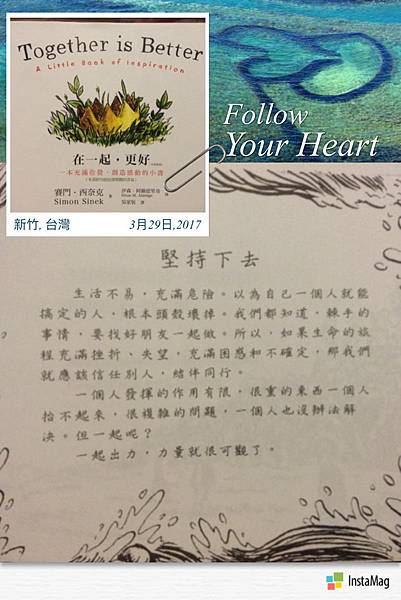 Together is Better
A Little Book of Inspiration
在一起·更好
一本充滿啟發、創造感動的小書
賽門·西奈克 著
Simon Sinek
新竹, 台灣
3月29日,2017
Follow
Your Heart
堅持下去
生活不易,充滿危險。以為自己一個人就能
搞定的人,根本頭殼壞掉。我們都知道,棘手的
事情,要找好朋友一起做。所以,如果生命的旅
程充滿挫折、失望,充滿困惑和不確定,那我們
就應該信任別人,結伴同行。
一個人發揮的作用有限,很重的東西一個人
抬不起來,很複雜的問題,一個人也沒辦法解
決。但一起呢?
一起出力,力量就很可觀了。
InstaMag